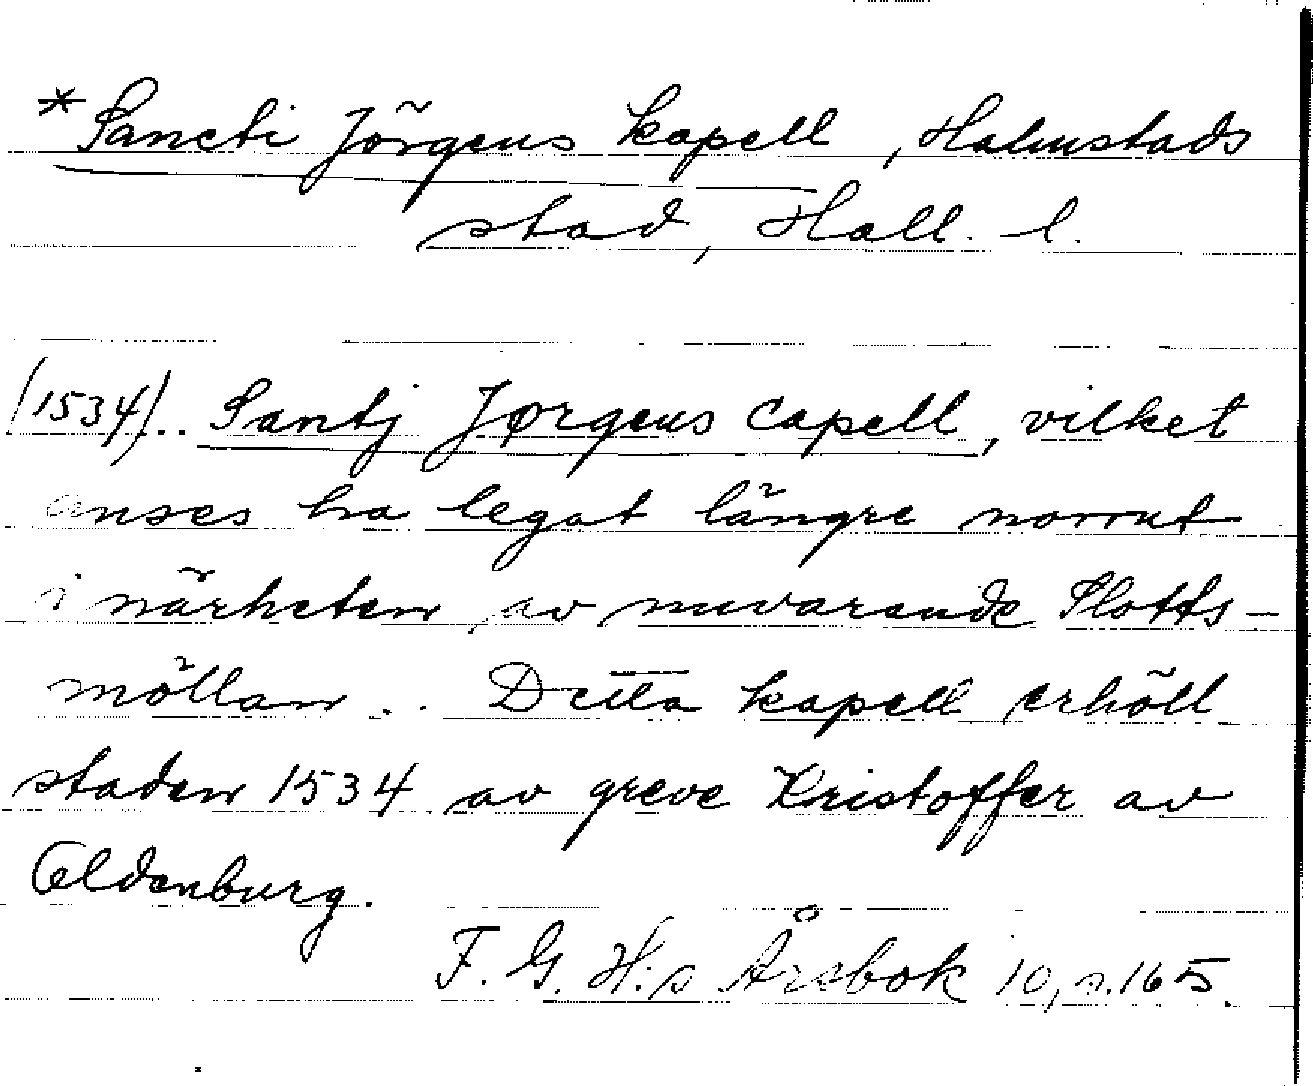 *Sancti Jörgens kapell, Halmstads
stad, Hall. l.
(1534).. Santj Jørgens Capell, vilket
anses ha legat längre norrut
i närheten av nuvarande Slotts-
möllan... Detta kapell erhöll
staden 1534 av greve Kristoffer av
Oldenburg.
F. G. H:s Årsbok 10, s. 165.